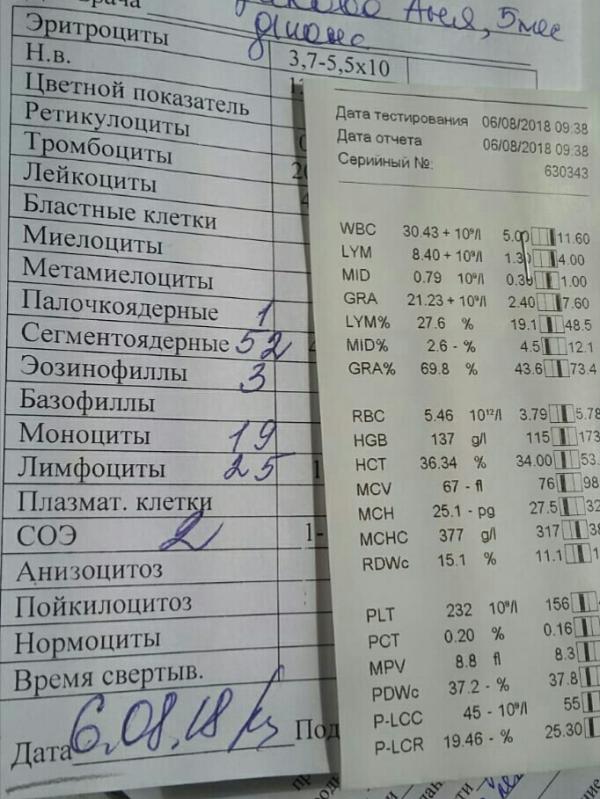 Врача
Аня, 5 мес
Эритроциты 3,7-5,5х10
Н.в.
Цветной показатель
Ретикулоциты
Тромбоциты
Лейкоциты
Бластные клетки
Миелоциты
Метамиелоциты
Палочкоядерные 1
Сегментоядерные 52
Эозинофиллы 3
Базофиллы
Моноциты 19
Лимфоциты 25
Плазмат. клетки
СОЭ 2 1-
Анизоцитоз
Пойкилоцитоз
Нормоциты
Время свертыв.
Дата 6.08.18 Под
Дата тестирования 06/08/2018 09:38
Дата отчета 06/08/2018 09:38
Серийный №: 630343
WBC 30.43 + 10⁹/l 5.00 11.60
LYM 8.40 + 10⁹/l 1.30 4.00
MID 0.79 10⁹/l 0.30 1.00
GRA 21.23 + 10⁹/l 2.40 7.60
LYM% 27.6 % 19.1 48.5
MID% 2.6 - % 4.5 12.1
GRA% 69.8 % 43.6 73.4
RBC 5.46 10¹²/l 3.79 5.78
HGB 137 g/l 115 173
HCT 36.34 % 34.00 53.
MCV 67 - fl 76 98
MCH 25.1 - pg 27.5 32
MCHC 377 g/l 317 38
RDWc 15.1 % 11.1 1
PLT 232 10⁹/l 156
PCT 0.20 % 0.16
MPV 8.8 fl 8.3
PDWc 37.2 - % 37.8
P-LCC 45 - 10⁹/l 55
P-LCR 19.46 - % 25.30